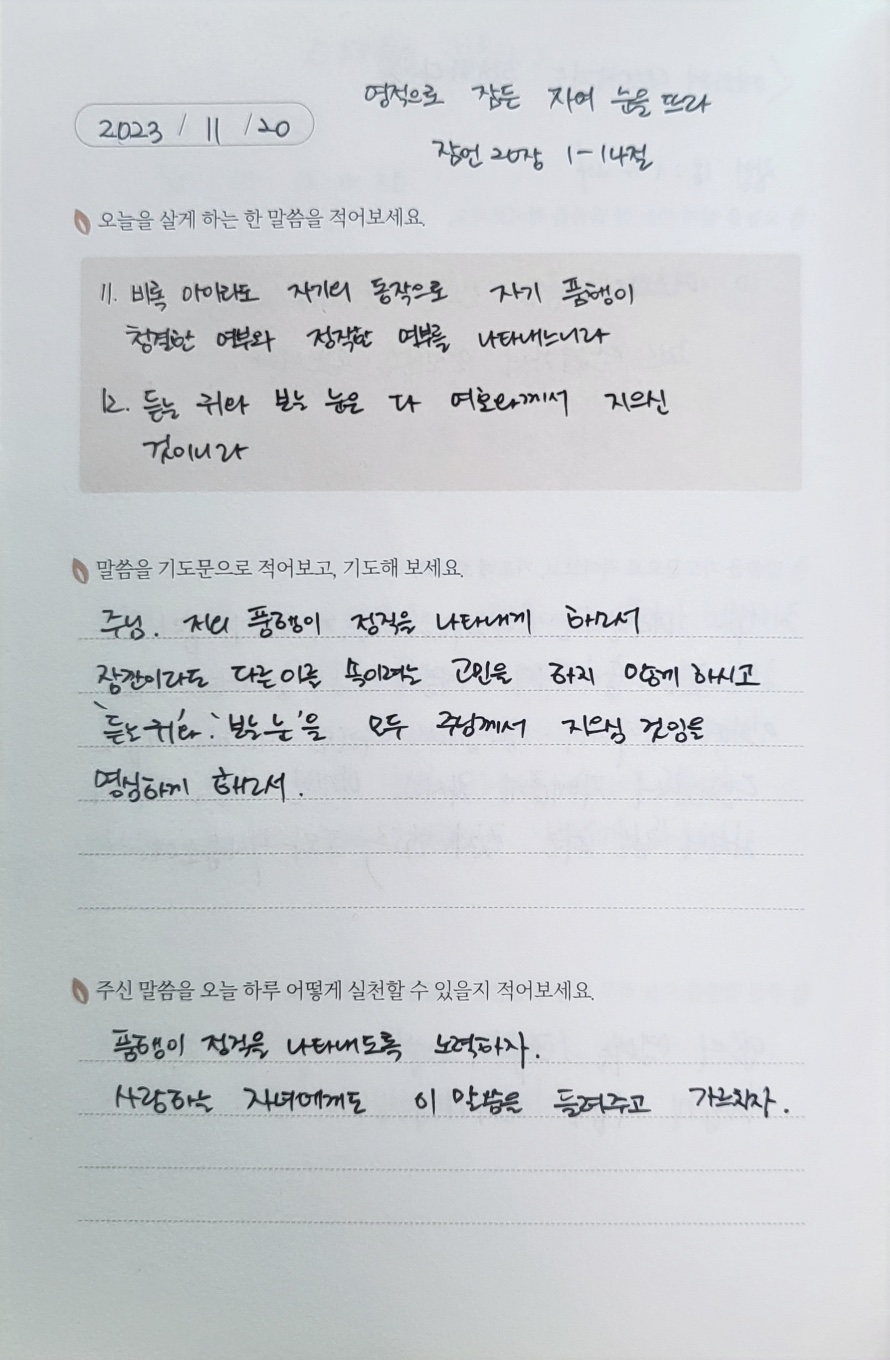 영적으로 잠든 자여 눈을 뜨라
2023 / 11 / 20
잠언 20장 1-14절
오늘을 살게 하는 한 말씀을 적어보세요.
11. 비록 아이라도 자기의 동작으로 자기 품행이
청결한 여부와 정직한 여부를 나타내느니라
12. 듣는 귀와 보는 눈은 다 여호와께서 지으신
것이니라
말씀을 기도문으로 적어보고, 기도해 보세요.
주님. 저의 품행이 정직을 나타내게 하소서
잠깐이라도 다른이를 속이려는 고민을 하지 않게 하시고
'듣는 귀'와 '보는 눈'을 모두 주님께서 지으심 것임을
명심하게 하소서.
주신 말씀을 오늘 하루 어떻게 실천할 수 있을지 적어보세요.
품행이 정직을 나타내도록 노력하자.
사랑하는 자녀에게도 이 말씀을 들려주고 가르치자.